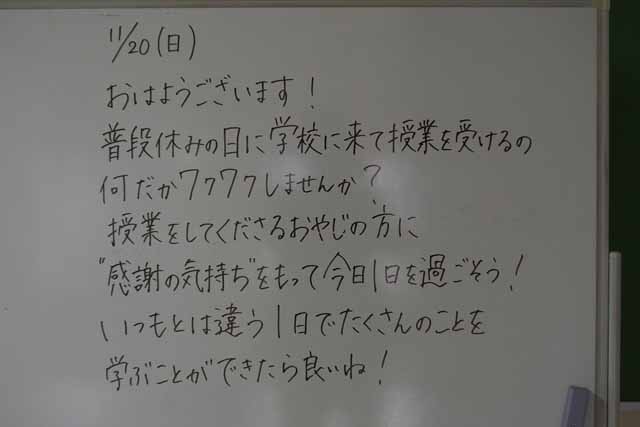 11/20(日)
おはようございます!
普段休みの日に学校に来て授業を受けるの
何だかワクワクしませんか?
授業をしてくださるおやじの方に
"感謝の気持ち"をもって今日1日を過ごそう!
いつもとは違う1日でたくさんのことを
学ぶことができたら良いね!